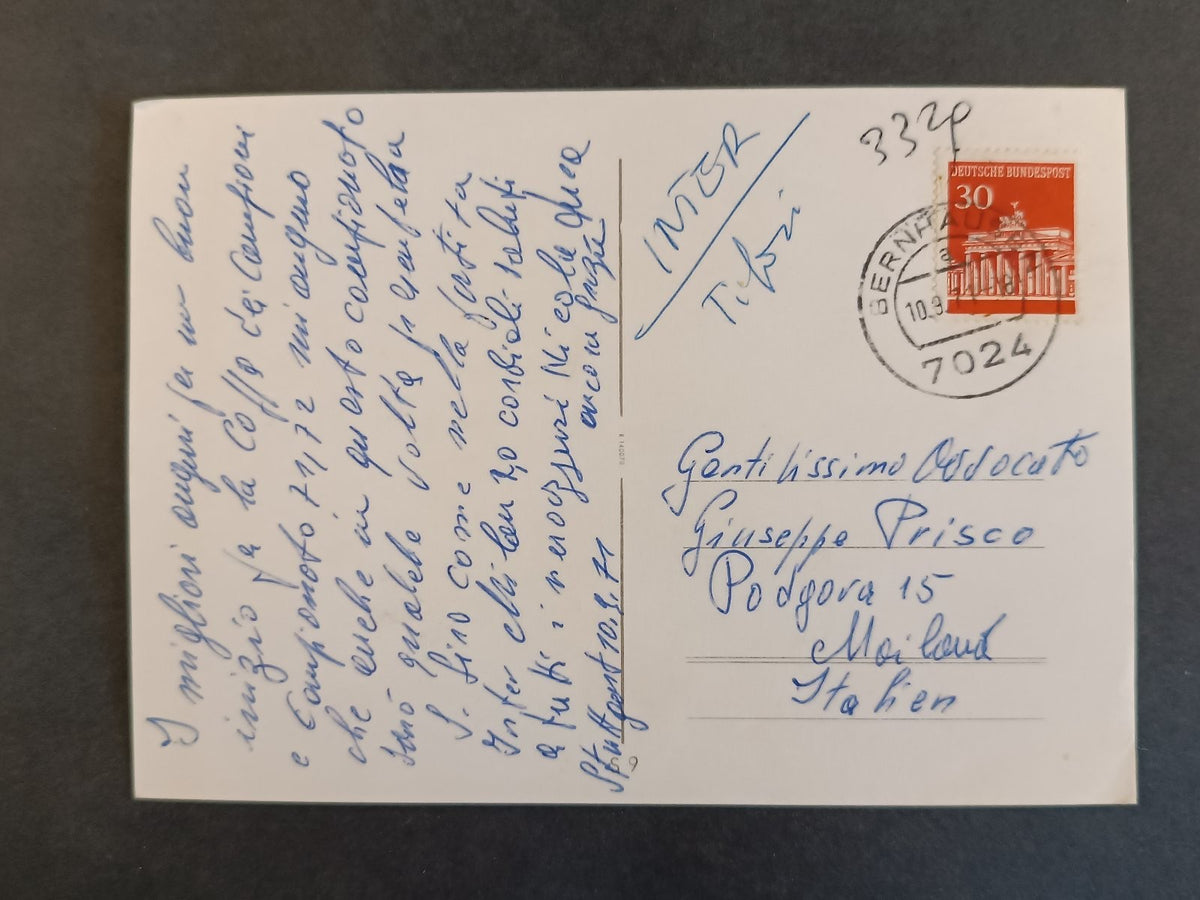 I migliori auguri per un buon
inizio per la Coppa dei Campioni
e Campionato 71/72 mi auguro
che anche in questo campionato
sarò qualche volta presente a
S. Siro come nella partita
Inter Milan 2,0 cordiali saluti
a tutti i nerazzurri Nicola
ancora grazie
Stuttgart 10.9.71
INTER
Tifosi
332
DEUTSCHE BUNDESPOST
30
BERNHAUSEN
a
10.9.
7024
Gentilissimo Avvocato
Giuseppe Prisco
Podgora 15
Mailand
Italien